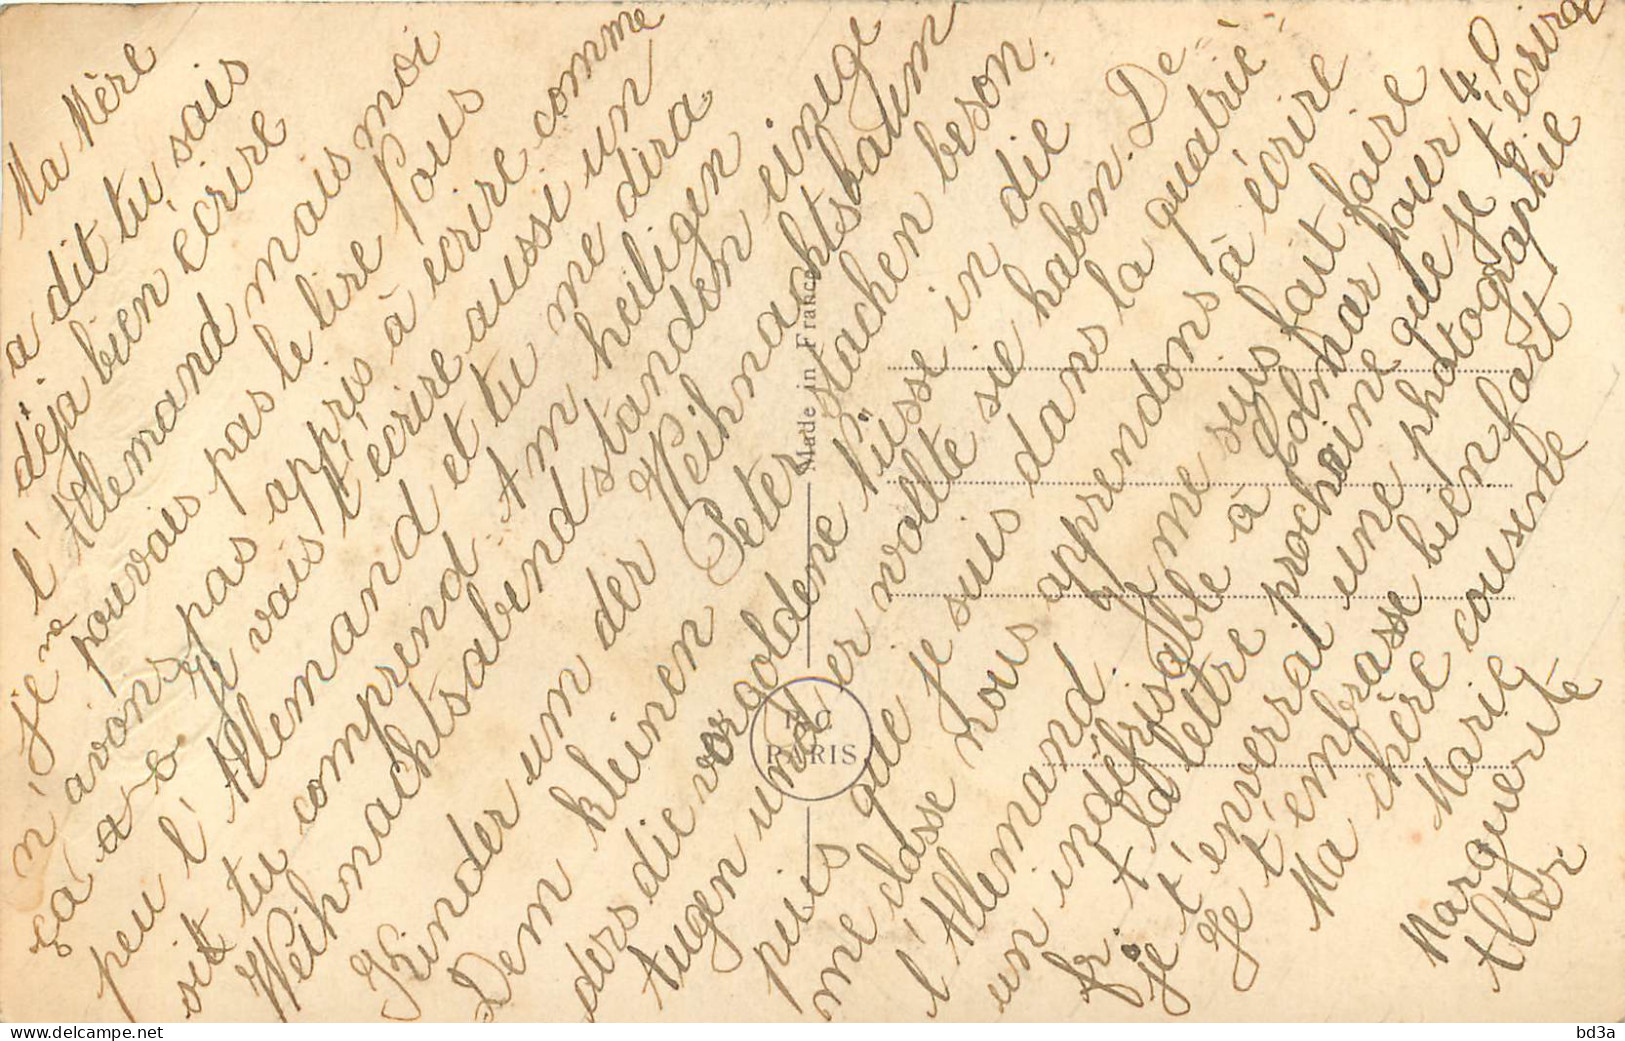 Ma Mère
a dit tu sais
déja bien écrire
l'Allemand mais moi
je ne pouvais pas le lire Nous
n'avons pas appris à écrire comme
ça Je vais t'écrire aussi un
peu l'Allemand et tu me dira
si tu comprend. Am heiligen
Weihnachtsabend standen einige
Kinder um der Weihnachtsbaum
Dem kleinen Peter stachen beson-
ders die vorgoldene Nüsse in die
Augen und er wollte sie haben. De-
puis que je suis dans la quatriè-
me classe nous apprendons à écrire
l'Allemand. Je me suis fait faire
un indéfrisable à Colmar pour 40
fr. A la lettre prochaine que je t'écrirai
je t'enverrai une photographie
Je t'embrasse bien fort
Ma chère cousine
Marie
Marguerite
Alter
Made in France
PARIS
bd3a